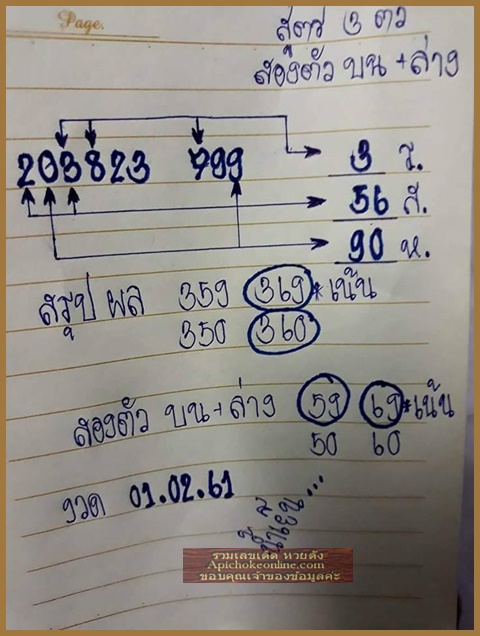 Page.
สูตร 3 ตัว
สองตัว บน + ล่าง
203823 799
3 ร.
56 สิ.
90 ห.
สรุป ผล 359 369 * เน้น
350 360
สองตัว บน + ล่าง 59 69 * เน้น
50 60
งวด 01.02.61
รวมเลขเด็ด หวยดัง
Apichokeonline.com
ขอบคุณเจ้าของข้อมูลค่ะ